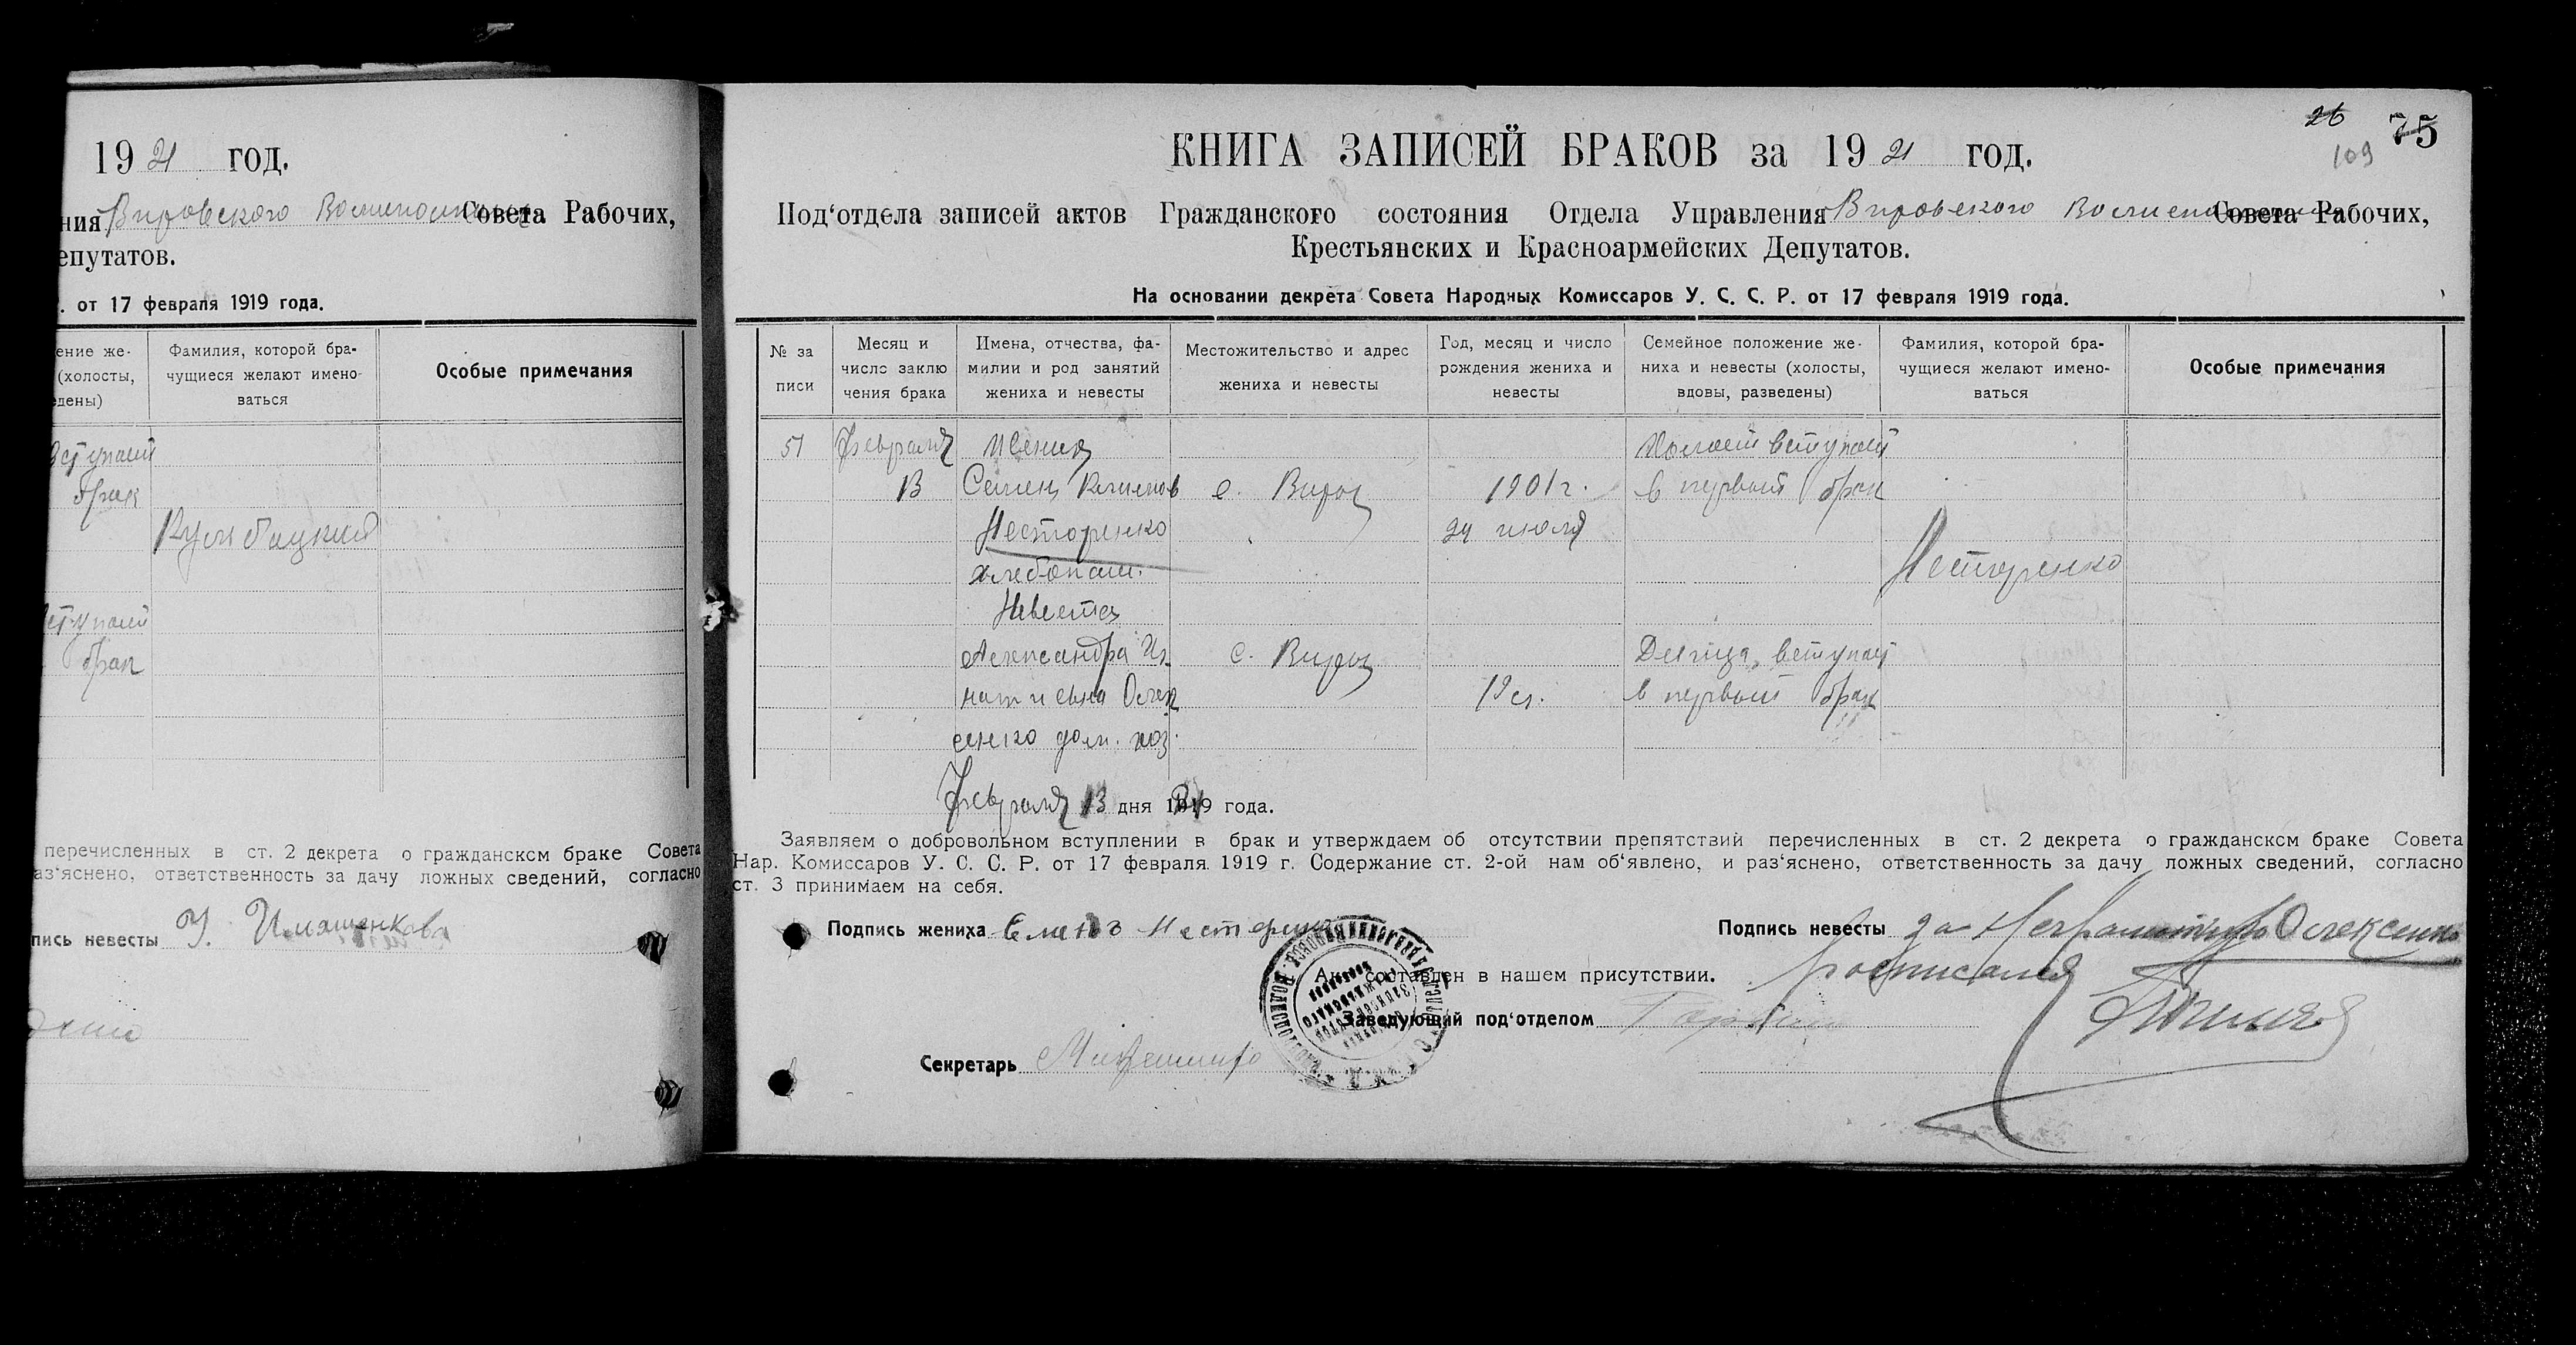 1921 год.
ния Вировского Волисполкома Совета Рабочих,
епутатов.
. от 17 февраля 1919 года.
ение же-
(холосты,
едены)
Фамилия, которой бра-
чущиеся желают имено-
ваться
Особые примечания
вступает
брак
Кумбацкий
вступает
брак
перечисленных в ст. 2 декрета о гражданском браке Совета
аз‘яснено, ответственность за дачу ложных сведений, согласно
пись невесты У. Имашенкова
26
75
109
КНИГА ЗАПИСЕЙ БРАКОВ за 1921 год.
Под‘отдела записей актов Гражданского состояния Отдела Управления Вировского Волисполкома Совета Рабочих,
Крестьянских и Красноармейских Депутатов.
На основании декрета Совета Народных Комиссаров У. С. С. Р. от 17 февраля 1919 года.
№ за
писи
Месяц и
число заклю
чения брака
Имена, отчества, фа-
милии и род занятий
жениха и невесты
Местожительство и адрес
жениха и невесты
Год, месяц и число
рождения жениха и
невесты
Семейное положение же-
ниха и невесты (холосты,
вдовы, разведены)
Фамилия, которой бра-
чущиеся желают имено-
ваться
Особые примечания
51 Февраля Жених Холост вступает
13 Семен с. Виры 1901 г. в первый брак
Нестеренко 24 июля
хлебопаш. Нестеренко
Невеста
Александра Иг с. Виры Девица, вступает
натиевна Олек 19 л. в первый брак
сенко дом. хоз.
Февраля 13 дня 1921 года.
Заявляем о добровольном вступлении в брак и утверждаем об отсутствии препятствий перечисленных в ст. 2 декрета о гражданском браке Совета
Нар. Комиссаров У. С. С. Р. от 17 февраля 1919 г. Содержание ст. 2-ой нам об‘явлено, и раз‘яснено, ответственность за дачу ложных сведений, согласно
ст. 3 принимаем на себя.
Подпись жениха Семен Нестеренко Подпись невесты за неграмотную Олексенко
Акт составлен в нашем присутствии. росписался
Заведующий под‘отделом
Секретарь